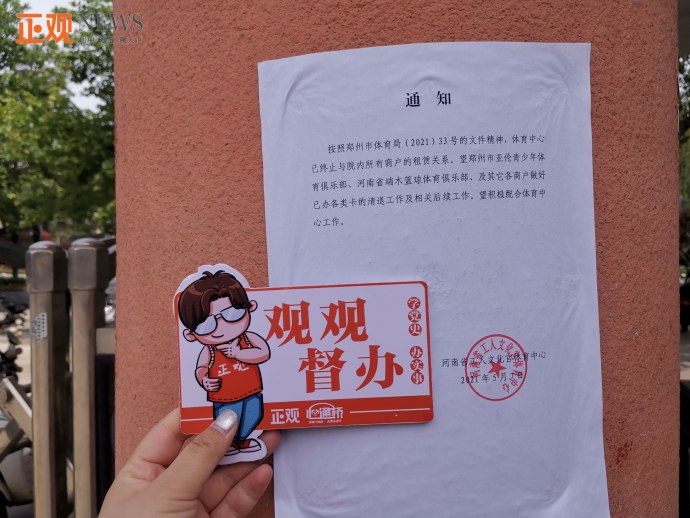 正观NEWS
通 知
按照郑州市体育局（2021）33号的文件精神，体育中心
已终止与院内所有商户的租赁关系。望郑州市亚伦青少年体
育俱乐部、河南省端木篮球体育俱乐部、及其它各商户做好
已办各类卡的清退工作及相关后续工作。望积极配合体育中
心工作。
河南省工人文化宫体育中心
2021年5月
观观
督办
学党史
办实事
正观
正观
心通桥